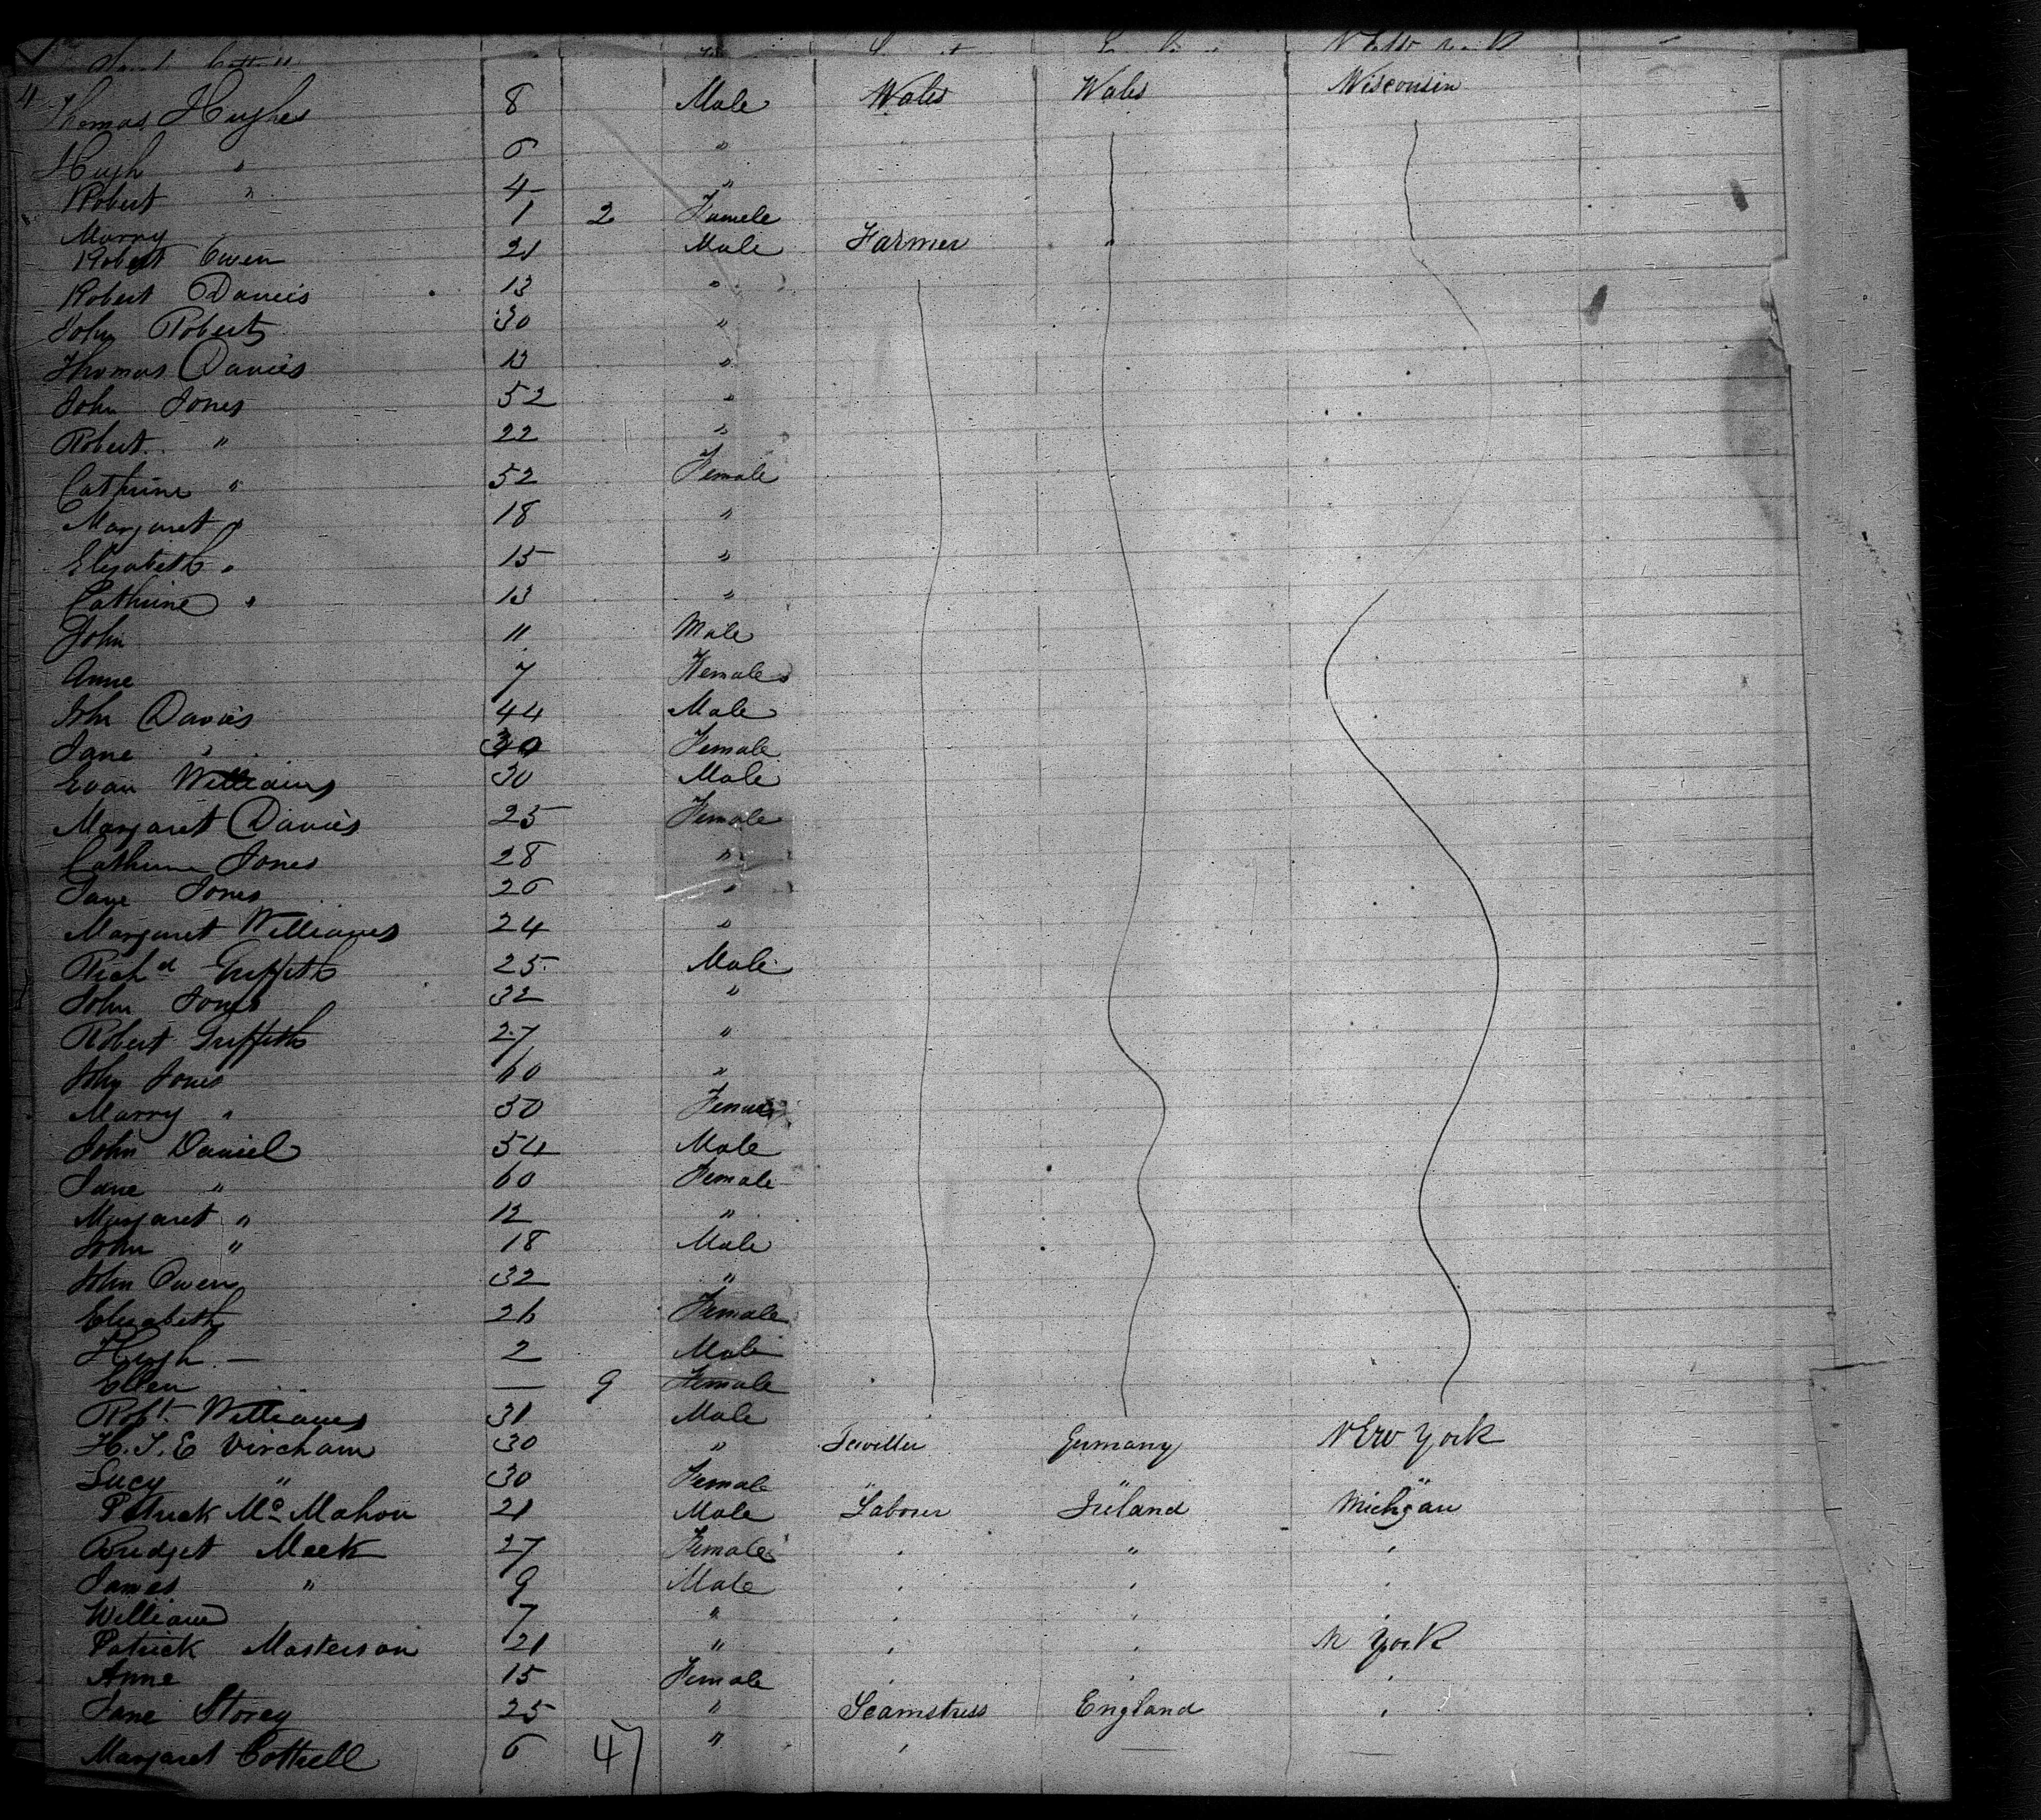 4
Thomas Hughes 8 Male Wales Wales Wisconsin
Hugh " 6 "
Robert " 4 "
Marry 1 2 Famele
Robert Owen 21 Male Farmer "
Robert Davies 13 "
John Robert 30 "
Thomas Davies 13 "
John Jones 52 "
Robert " 22 "
Cathrine " 52 Female
Margaret " 18 "
Elizabeth " 15 "
Cathrine " 13 "
John 11 Male
Anne 7 Female
John Davies 44 Male
Jane " 30 Female
Evan Williams 30 Male
Margaret Davies 25 Female
Cathrine Jones 28 "
Jane Jones 26 "
Margaret Williams 24 "
Richd Griffith 25 Male
John Jones 32 "
Robert Griffith 27 "
John Jones 60 "
Marry " 50 Female
John Daniel 54 Male
Jane " 60 Female
Margaret " 12 "
John " 18 Male
John Owens 32 "
Elizabeth 26 Female
Hugh — 2 Male
Ellen — 9 Female
Robt Williams 31 Male
H. J. E Vircham 30 " Jeweller Germany New York
Lucy " 30 Female " " "
Patrick Mc Mahon 21 Male Labourer Ireland Michgan
Bridget Meek 27 Female " " "
James " 9 Male " " "
William 7 " " " "
Patrick Masterson 21 " " " N York
Anne 15 Female " " "
Jane Storey 25 " Seamstress England "
Margaret Cottrell 6 47 " " —